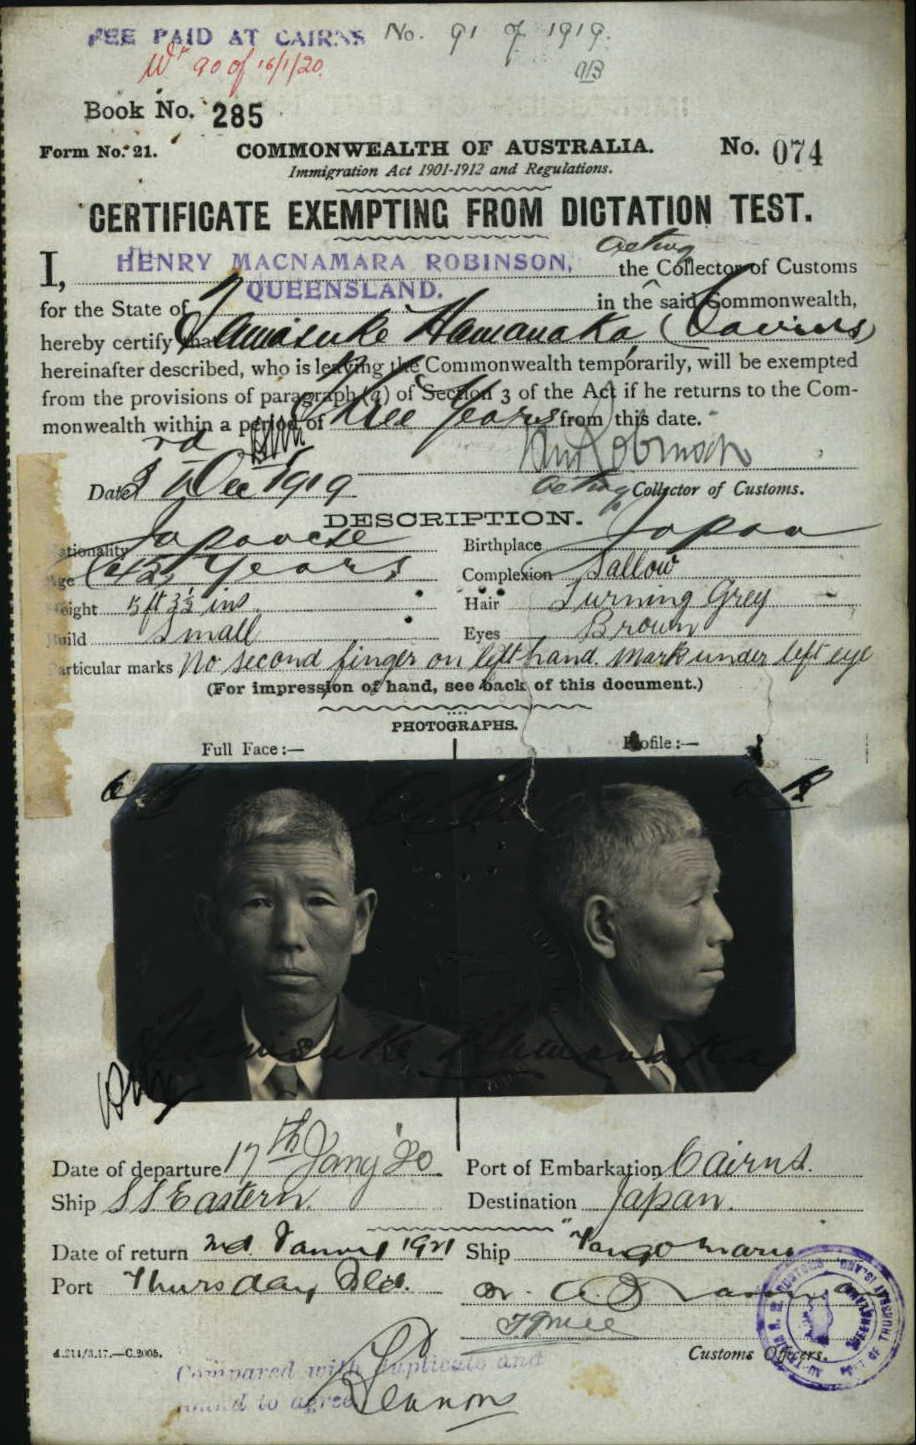 FEE PAID AT CAIRNS No. 91 of 1919.
90 of 16/1/20.
Book No. 285
Form No. 21. COMMONWEALTH OF AUSTRALIA. No. 074
Immigration Act 1901-1912 and Regulations.
CERTIFICATE EXEMPTING FROM DICTATION TEST.
acting
I, HENRY MACNAMARA ROBINSON, the Collector of Customs
for the State of QUEENSLAND. in the said Commonwealth,
hereby certify that Hamanaka (Cairns)
hereinafter described, who is leaving the Commonwealth temporarily, will be exempted
from the provisions of paragraph (a) of Section 3 of the Act if he returns to the Com-
monwealth within a period of Three Years from this date.
Date 3rd Dec 1919
Acting Collector of Customs.
DESCRIPTION.
Nationality Japanese Birthplace Japan
Age 42 Years Complexion Sallow
Height 5 ft 3½ ins Hair Turning Grey
Build Small Eyes Brown
Particular marks No second finger on left hand. mark under left eye
(For impression of hand, see back of this document.)
PHOTOGRAPHS.
Full Face:— Profile:—
Hamanaka
Date of departure 17th Jany '20 Port of Embarkation Cairns.
Ship SS Eastern. Destination Japan.
Date of return 2nd 1921 Ship "Tango Maru
Port Thursday Isld.
Customs Officers.
d.214/3.17.—C.2005.
Compared with duplicate and
found to agree